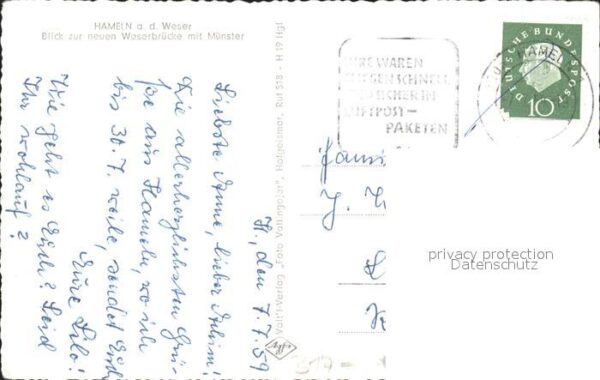 HAMELN a. d. Weser
Blick zur neuen Weserbrücke mit Münster
H., den 7.7.59
Liebste Anne, lieber Achim!
Die allerherzlichsten Grü-
ße aus Hameln, wo ich
bis 30.7. weile, sendet Euch
Eure Lilo!
Wie geht es Euch? Seid
Ihr wohlauf?
Volt-Verlag "Foto Vollimhaus", Hofgeismar, Ruf 518 - H 19 Hgf
IHRE WAREN
FLIEGEN SCHNELL
UND SICHER IN
LUFTPOST-
PAKETEN
HAMELN
DEUTSCHE BUNDESPOST
10
Fami
J.
privacy protection
Datenschutz